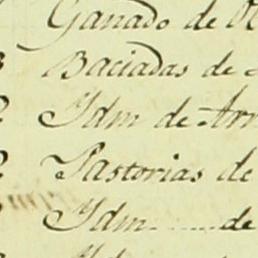 Ganado de
Baciadas de
Ydm de
Pastorias de
Ydm......de